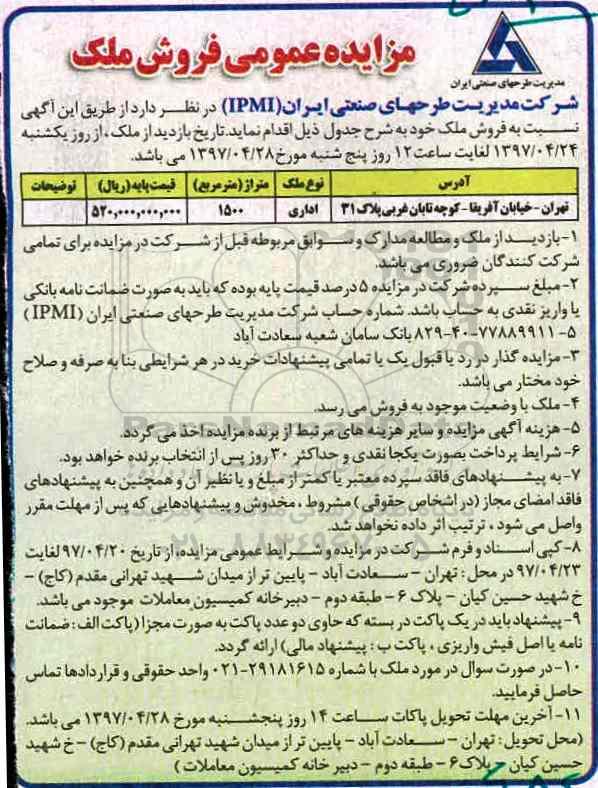 مزایده عمومی فروش ملک
مدیریت طرحهای صنعتی ایران
شرکت مدیریت طرحهای صنعتی ایران (IPMI) در نظر دارد از طریق این آگهی
نسبت به فروش ملک خود به شرح جدول ذیل اقدام نماید. تاریخ بازدید از ملک ، از روز یکشنبه
۱۳۹۷/۰۴/۲۴ لغایت ساعت ۱۲ روز پنج شنبه مورخ ۱۳۹۷/۰۴/۲۸ می باشد.
آدرس نوع ملک متراژ (مترمربع) قیمت پایه (ریال) توضیحات
تهران - خیابان آفریقا - کوچه تابان غربی پلاک ۳۱ اداری ۱۵۰۰ ۵۲۰,۰۰۰,۰۰۰,۰۰۰
۱- بازدید از ملک و مطالعه مدارک و سوابق مربوطه قبل از شرکت در مزایده برای تمامی
شرکت کنندگان ضروری می باشد.
۲- مبلغ سپرده شرکت در مزایده ۵ درصد قیمت پایه بوده که باید به صورت ضمانت نامه بانکی
یا واریز نقدی به حساب باشد. شماره حساب شرکت مدیریت طرحهای صنعتی ایران (IPMI)
۵- ۸۲۹-۴۰-۷۷۸۸۹۹۱۱ بانک سامان شعبه سعادت آباد
۳- مزایده گذار در رد یا قبول یک یا تمامی پیشنهادات خرید در هر شرایطی بنا به صرفه و صلاح
خود مختار می باشد.
۴- ملک با وضعیت موجود به فروش می رسد.
۵- هزینه آگهی مزایده و سایر هزینه های مرتبط از برنده مزایده اخذ می گردد.
۶- شرایط پرداخت بصورت یکجا نقدی و حداکثر ۳۰ روز پس از انتخاب برنده خواهد بود.
۷- به پیشنهادهای فاقد سپرده معتبر یا کمتر از مبلغ و یا نظیر آن و همچنین به پیشنهادهای
فاقد امضای مجاز (در اشخاص حقوقی) مشروط ، مخدوش و پیشنهادهایی که پس از مهلت مقرر
واصل می شود ، ترتیب اثر داده نخواهد شد.
۸- کپی اسناد و فرم شرکت در مزایده و شرایط عمومی مزایده، از تاریخ ۹۷/۰۴/۲۰ لغایت
۹۷/۰۴/۲۳ در محل : تهران - سعادت آباد - پایین تر از میدان شهید تهرانی مقدم (کاج) -
خ شهید حسین کیان - پلاک ۶ - طبقه دوم - دبیرخانه کمیسیون معاملات موجود می باشد.
۹- پیشنهاد باید در یک پاکت در بسته که حاوی دو عدد پاکت به صورت مجزا (پاکت الف : ضمانت
نامه یا اصل فیش واریزی ، پاکت ب : پیشنهاد مالی) ارائه گردد.
۱۰- در صورت سوال در مورد ملک با شماره ۲۹۱۸۱۶۱۵-۰۲۱ واحد حقوقی و قراردادها تماس
حاصل فرمایید.
۱۱- آخرین مهلت تحویل پاکات ساعت ۱۴ روز پنجشنبه مورخ ۱۳۹۷/۰۴/۲۸ می باشد.
(محل تحویل : تهران - سعادت آباد - پایین تر از میدان شهید تهرانی مقدم (کاج) - خ شهید
حسین کیان - پلاک ۶ - طبقه دوم - دبیر خانه کمیسیون معاملات )